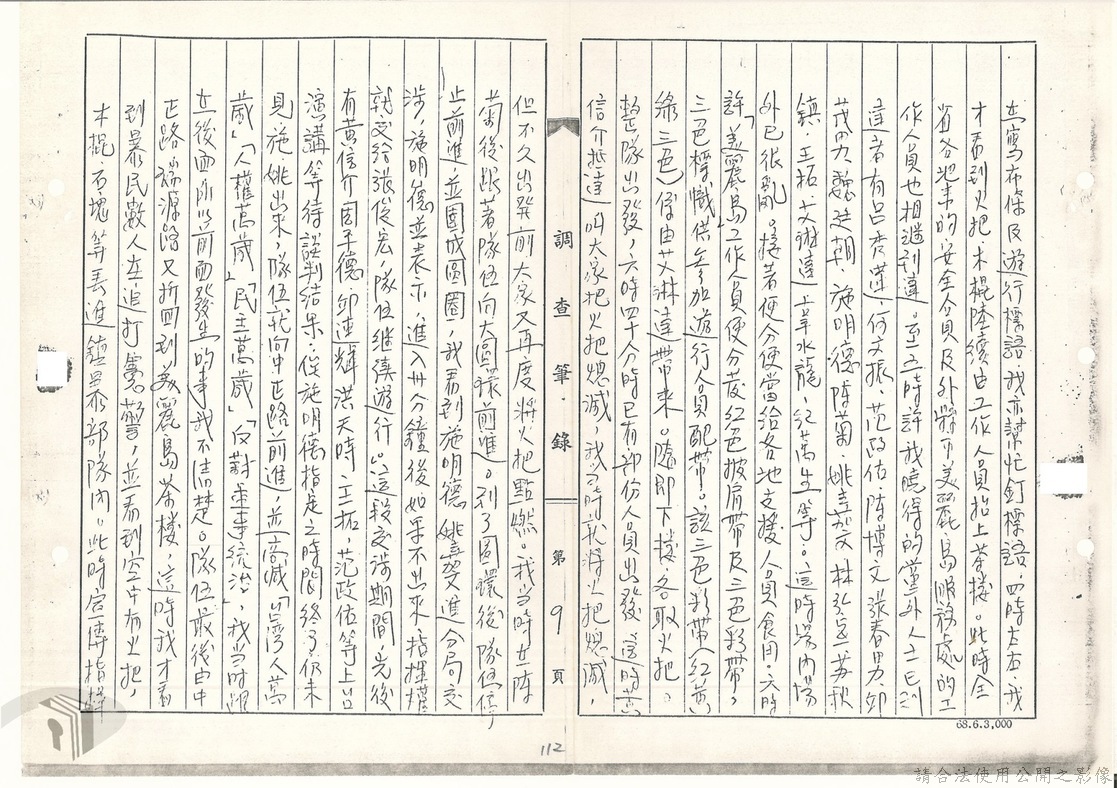 在寫布條及遊行標語我亦幫忙釘標語。四時左右,我
才看到火把、木棍陸續由工作人員抬上茶樓。此時全
省各地來的安全人員及外縣市美麗島服務處的工
作人員也相繼到達。至五時許我曉得的黨外人士已到
達者有呂秀蓮、何文振、范政佑、陳博文、張春男、邱
茂男、魏廷朝、施明德、陳菊、姚嘉文、林弘宣、蘇秋
鎮、王拓、艾琳達、辛水龍、紀萬生等。這時場內場
外已很亂。接著便分便當給各地支援人員食用。六時
許,「美麗島」工作人員便分發紅色披肩帶及三色彩帶,
三色標幟供參加遊行人員配帶。該三色彩帶(紅黃
綠三色)係由艾琳達帶來。隨即下樓各取火把。
整隊出發,六時四十分時已有部份人員出發,這時黃
信介抵達叫大家把火把熄滅,我當時就將火把熄滅,
調查筆錄 第9頁
但不久出發前大家又再度將火把點燃。我當時在陳
菊後跟著隊伍向大圓環前進。到了圓環後隊伍停
止前進,並圍成圓圈,我看到施明德、姚嘉文進分局交
涉,施明德並表示,進入卅分鐘後如果不出來指揮權
就交給張俊宏,隊伍繼續遊行。這段交涉期間,先後
有黃信介、周平德、邱連輝、洪天時、王拓、范政佑等上台
演講等待談判結果,俟施明德指定之時間終了仍未
見施姚出來,隊伍就向中正路前進,並高喊「台灣人萬
歲」「人權萬歲」「民主萬歲」「反對軍事統治」,我當時跟
在後面所以前面發生的事我不清楚。隊伍最後由中
正路、瑞源路又折回到美麗島茶樓,這時我才看
到暴民數人在追打憲警,並看到空中有火把,
木棍石塊等丟進鎮暴部隊內。此時宣傳指揮
68.6.3,000
112
請合法使用公開之影像